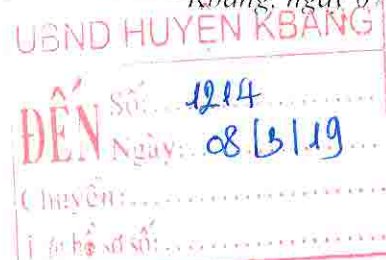 Kbang, ngày 0
UBND HUYỆN KBANG
ĐẾN
Số: 1214
Ngày: 08/3/19
Chuyển:
Lưu hồ sơ số: